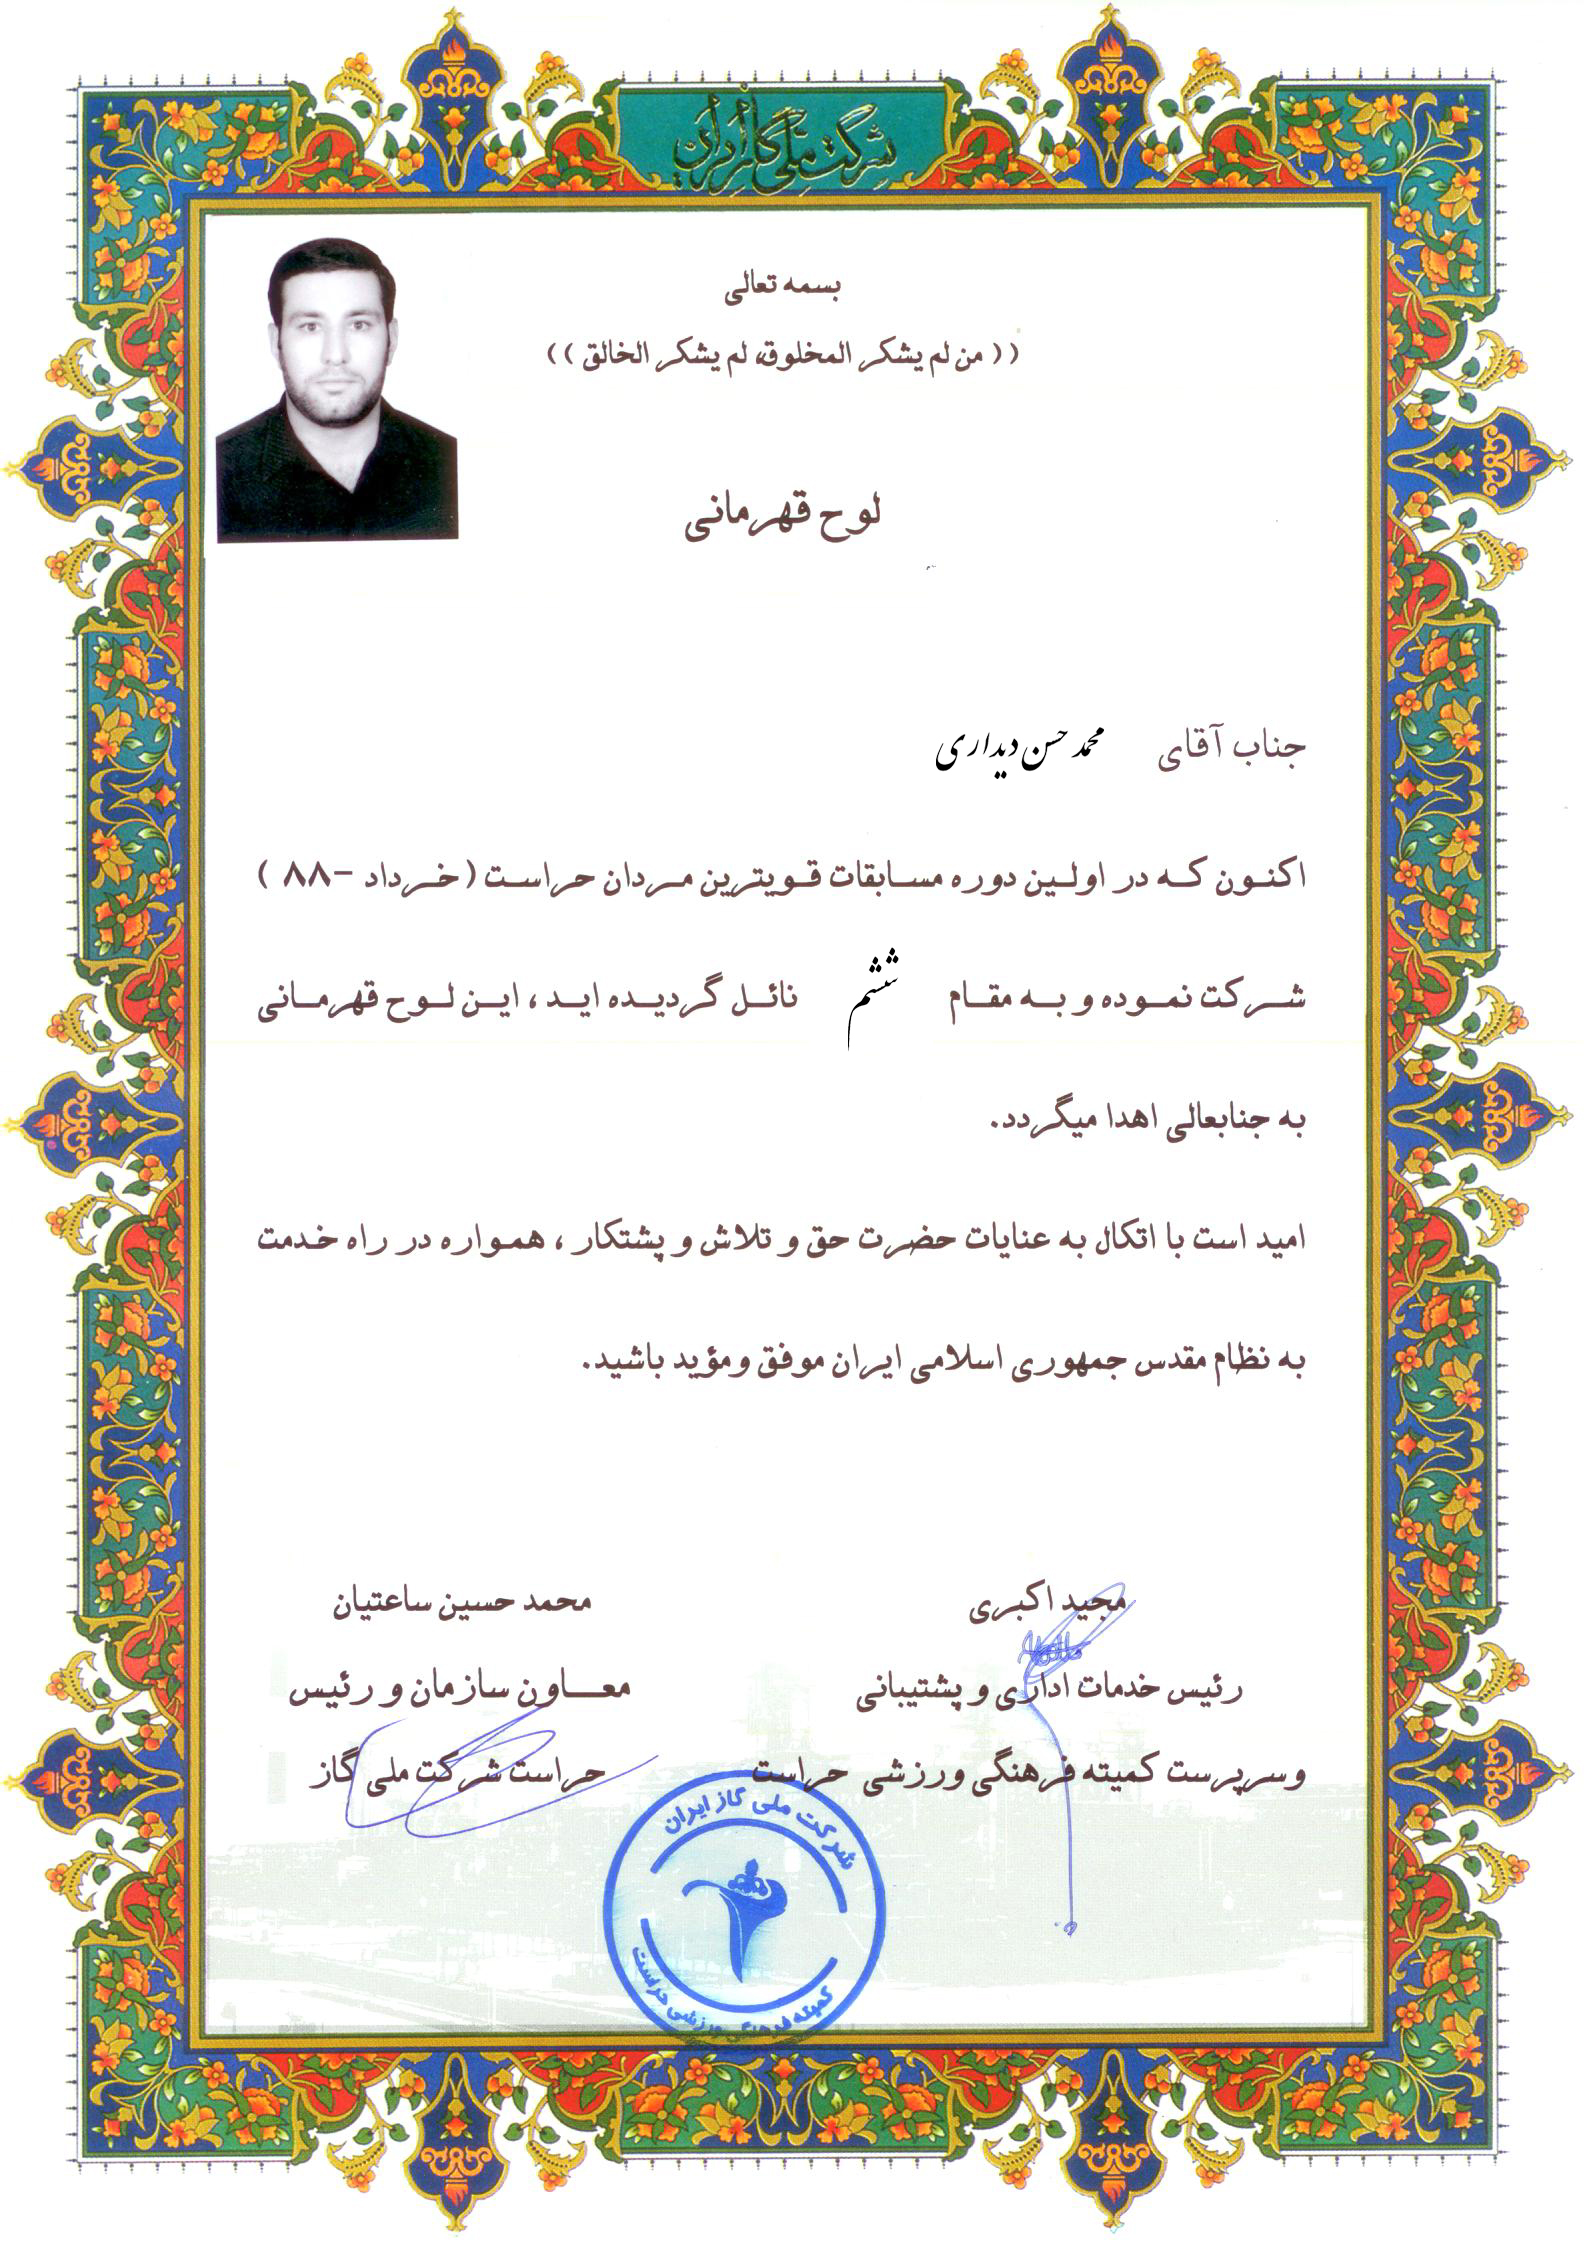 شرکت ملی گاز ایران
بسمه تعالی
(( من لم یشکر المخلوق، لم یشکر الخالق ))
لوح قهرمانی
جناب آقای محمد حسن دیداری
اکنون که در اولین دوره مسابقات قویترین مردان حراست (خرداد -۸۸ )
شرکت نموده و به مقام ششم نائل گردیده اید ، این لوح قهرمانی
به جنابعالی اهدا میگردد.
امید است با اتکال به عنایات حضرت حق و تلاش و پشتکار ، همواره در راه خدمت
به نظام مقدس جمهوری اسلامی ایران موفق ومؤید باشید.
مجید اکبری
رئیس خدمات اداری و پشتیبانی
وسرپرست کمیته فرهنگی ورزشی حراست
محمد حسین ساعتیان
معاون سازمان و رئیس
حراست شرکت ملی گاز
شرکت ملی گاز ایران
کمیته فرهنگی ورزشی حراست